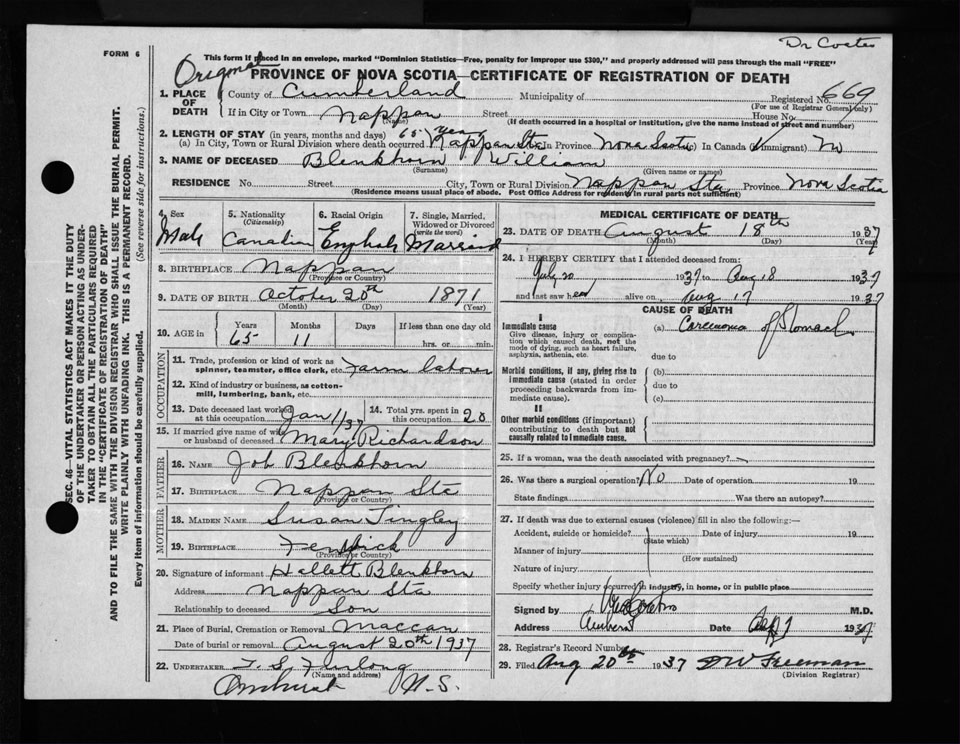 Dr Coates
FORM 6
This form if placed in an envelope, marked "Dominion Statistics—Free, penalty for improper use $300," and properly addressed will pass through the mail "FREE"
Original
PROVINCE OF NOVA SCOTIA—CERTIFICATE OF REGISTRATION OF DEATH
1. PLACE OF DEATH
County of Cumberland Municipality of Registered No. 669
(For use of Registrar General only)
If in City or Town Nappan Street House No.
(Name) (If death occurred in a hospital or institution, give the name instead of street and number)
2. LENGTH OF STAY (in years, months and days) 65 years
(a) In City, Town or Rural Division where death occurred Nappan Sta. In Province Nova Scotia In Canada (if immigrant)
3. NAME OF DECEASED Blenkhorn William
(Surname) (Given name or names)
RESIDENCE No. Street City, Town or Rural Division Nappan Sta Province Nova Scotia
(Residence means usual place of abode. Post Office Address for residents in rural parts not sufficient)
4. Sex Male
5. Nationality (Citizenship) Canadian
6. Racial Origin English
7. Single, Married, Widowed or Divorced (write the word) Married
8. BIRTHPLACE Nappan
(Province or Country)
9. DATE OF BIRTH October 20th 1871
(Month) (Day) (Year)
10. AGE IN Years 65 Months 11 Days If less than one day old hrs. or min.
OCCUPATION
11. Trade, profession or kind of work as spinner, teamster, office clerk, etc. Farm labour
12. Kind of industry or business, as cotton-mill, lumbering, bank, etc.
13. Date deceased last worked at this occupation Jan 1/37
14. Total yrs. spent in this occupation 20
15. If married give name of wife or husband of deceased Mary Richardson
FATHER
16. NAME Job Blenkhorn
17. BIRTHPLACE Nappan Sta
(Province or Country)
MOTHER
18. MAIDEN NAME Susan Tingley
19. BIRTHPLACE Fenwick
(Province or Country)
20. Signature of informant Hallett Blenkhorn
Address Nappan Sta
Relationship to deceased Son
21. Place of Burial, Cremation or Removal Maccan
Date of burial or removal August 20th 1937
22. UNDERTAKER T. S. Furlong
(Name and address)
Amherst N.S.
MEDICAL CERTIFICATE OF DEATH
23. DATE OF DEATH August 18th 1937
(Month) (Day) (Year)
24. I HEREBY CERTIFY that I attended deceased from:
July 20 1937 to Aug 18 1937
and last saw h alive on Aug 17 1937
CAUSE OF DEATH
I
Immediate cause (a) Carcinoma of Stomach
Give disease, injury or complication which caused death, not the mode of dying, such as heart failure, asphyxia, asthenia, etc.
due to
Morbid conditions, if any, giving rise to immediate cause (stated in order proceeding backwards from immediate cause).
(b)
due to
(c)
II
Other morbid conditions (if important) contributing to death but not causally related to immediate cause.
25. If a woman, was the death associated with pregnancy?
26. Was there a surgical operation? No Date of operation 19
State findings Was there an autopsy?
27. If death was due to external causes (violence) fill in also the following:—
Accident, suicide or homicide? Date of injury 19
(State which)
Manner of injury
(How sustained)
Nature of injury
Specify whether injury occurred in industry, in home, or in public place
Signed by M.D.
Address Amherst Date 1937
28. Registrar's Record Number
29. Filed Aug 20th 1937 D W Freeman
(Division Registrar)
SEC. 46—VITAL STATISTICS ACT MAKES IT THE DUTY
OF THE UNDERTAKER OR PERSON ACTING AS UNDER-
TAKER TO OBTAIN ALL THE PARTICULARS REQUIRED
IN THE "CERTIFICATE OF REGISTRATION OF DEATH"
AND TO FILE THE SAME WITH THE DIVISION REGISTRAR WHO SHALL ISSUE THE BURIAL PERMIT.
WRITE PLAINLY WITH UNFADING INK. THIS IS A PERMANENT RECORD.
Every item of information should be carefully supplied. (See reverse side for instructions.)